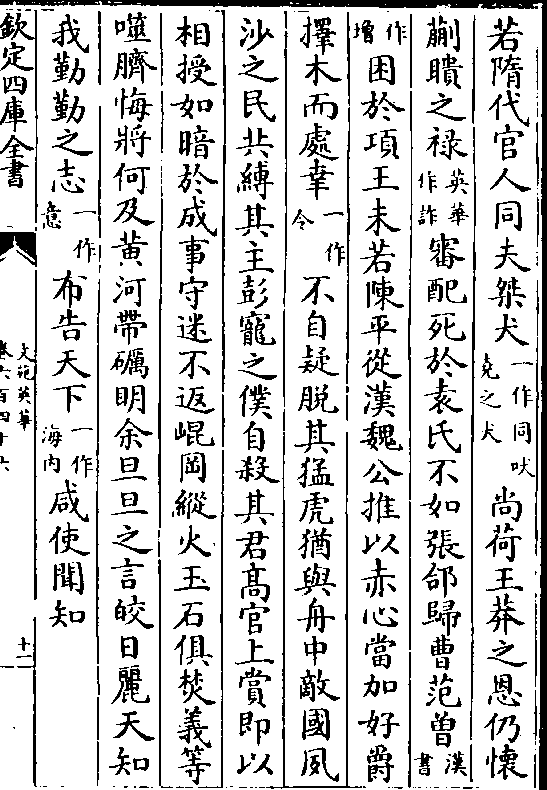 若隋代官人同夫桀犬一作同吠堯之犬尚荷王莽之恩仍懷
蒯聵之禄英華作詐審配死於袁氏不如張郃歸曹范曽漢書
作增困於項王未若陳平從漢魏公推以赤心當加好爵
擇木而處幸一作令不自疑脱其猛虎猶與舟中敵國夙
沙之民共縛其主彭寵之僕自殺其君髙官上賞即以
相授如暗於成事守迷不返崐岡縱火玉石俱焚義等
噬臍悔將何及黄河帶礪明余旦旦之言皎日麗天知
我勤勤之志一作意布告天下一作海内咸使聞知
欽定四庫全書
文苑英華
卷六百四十六
十一